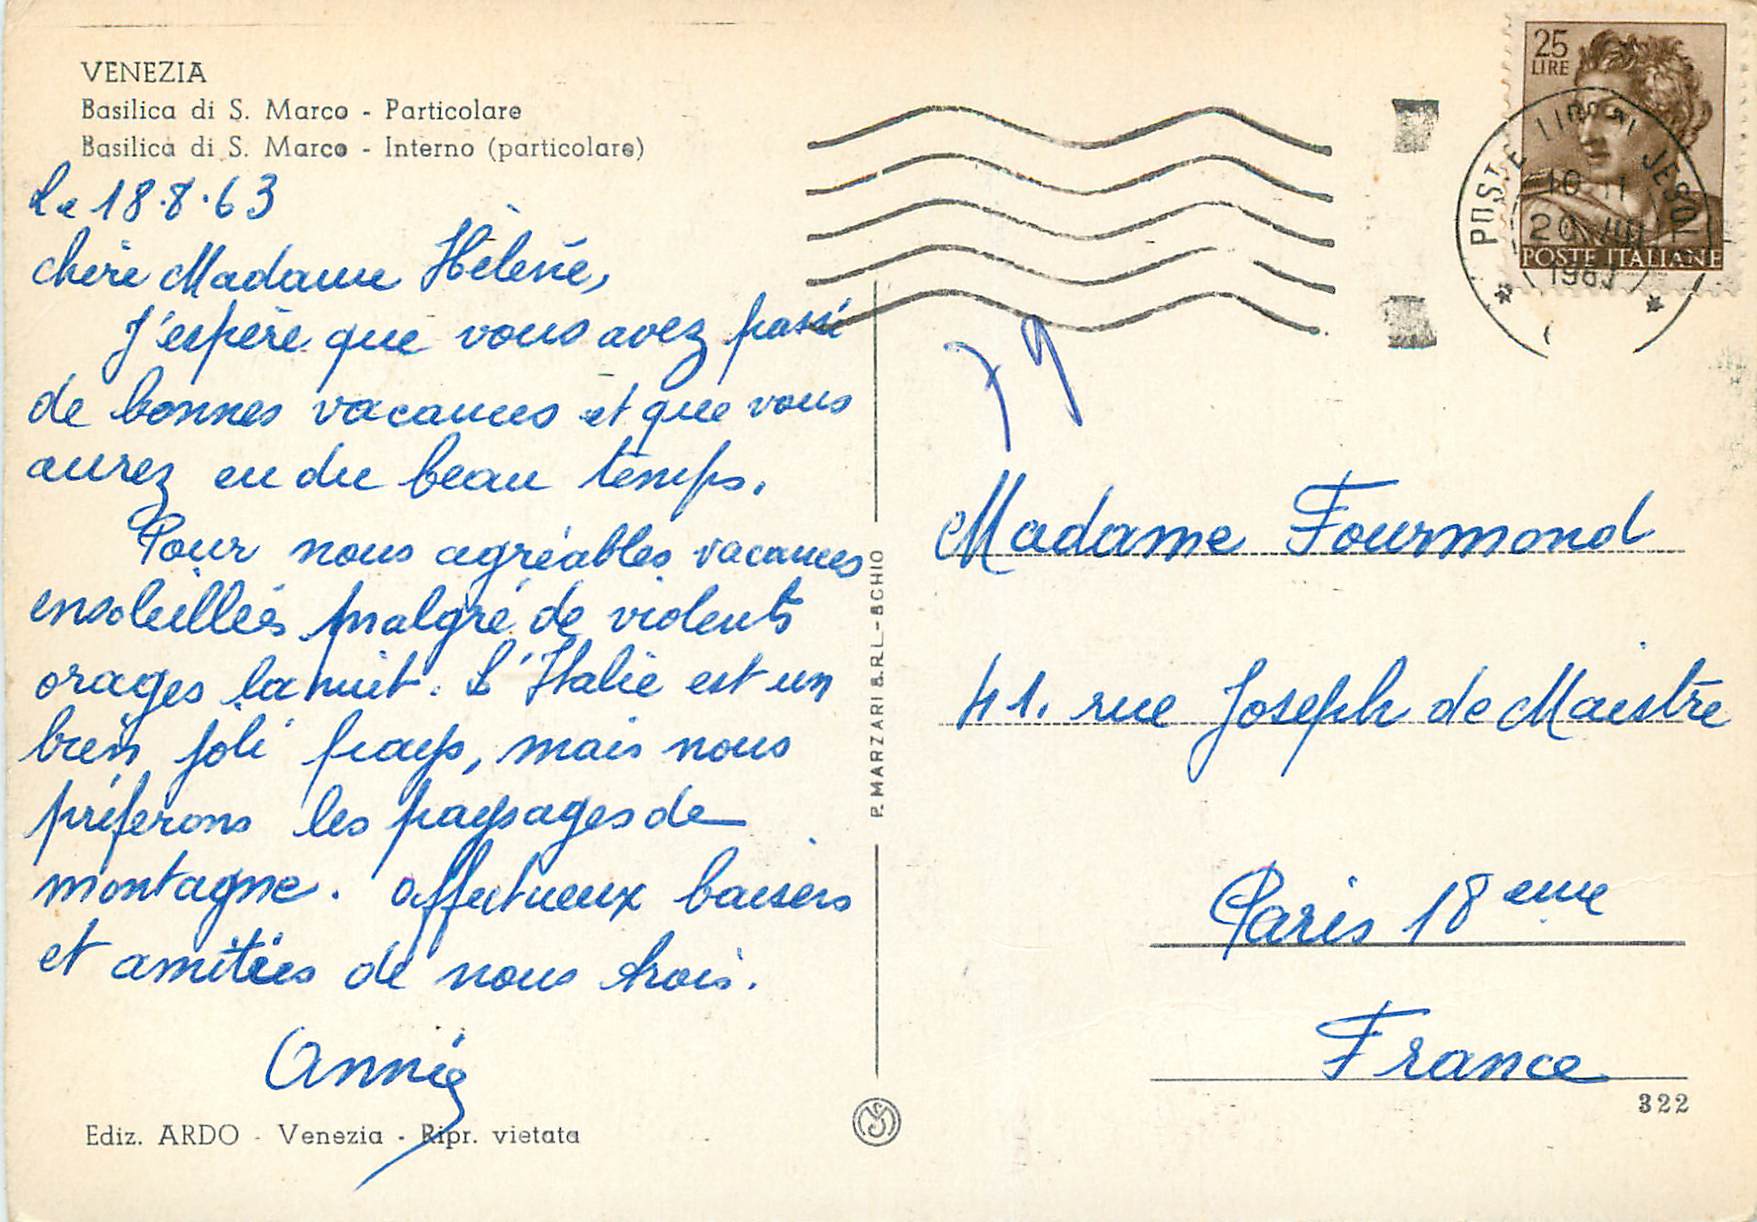 VENEZIA
Basilica di S. Marco - Particolare
Basilica di S. Marco - Interno (particolare)
Le 18.8.63
Chère Madame Hélène,
J'espère que vous avez passé
de bonnes vacances et que vous
aurez eu du beau temps.
Pour nous agréables vacances
ensoleillées malgré de violents
orages la nuit. L'Italie est un
bien joli pays, mais nous
préferons les paysages de
montagne. Affectueux baisers
et amitiés de nous trois.
Annie
Ediz. ARDO - Venezia - Ripr. vietata
P. MARZARI S.R.L. - SCHIO
25
LIRE
POSTE ITALIANE
POSTE JESOLO
10 11
20 VIII
1963
79
Madame Fourmond
41. rue Joseph de Maistre
Paris 18eme
France
322